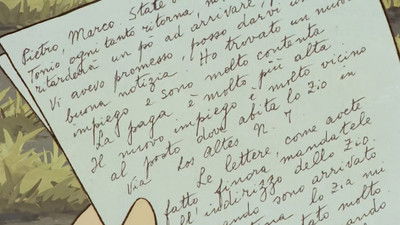 Pietro, Marco. State
Tonio ogni tanto ritorna,
ritarderà un po ad arrivare,
Vi avevo promesso, posso darvi
buona notizia. Ho trovato un nuovo
impiego e sono molto contenta
La paga è molto più alta
Il nuovo impiego è molto vicino
al posto dove abita lo zio in
Via Los Altes N. 7
Le lettere, come avete
fatto finora mandatele
all'indirizzo dello zio.
sono arrivato
lo zia
molto.